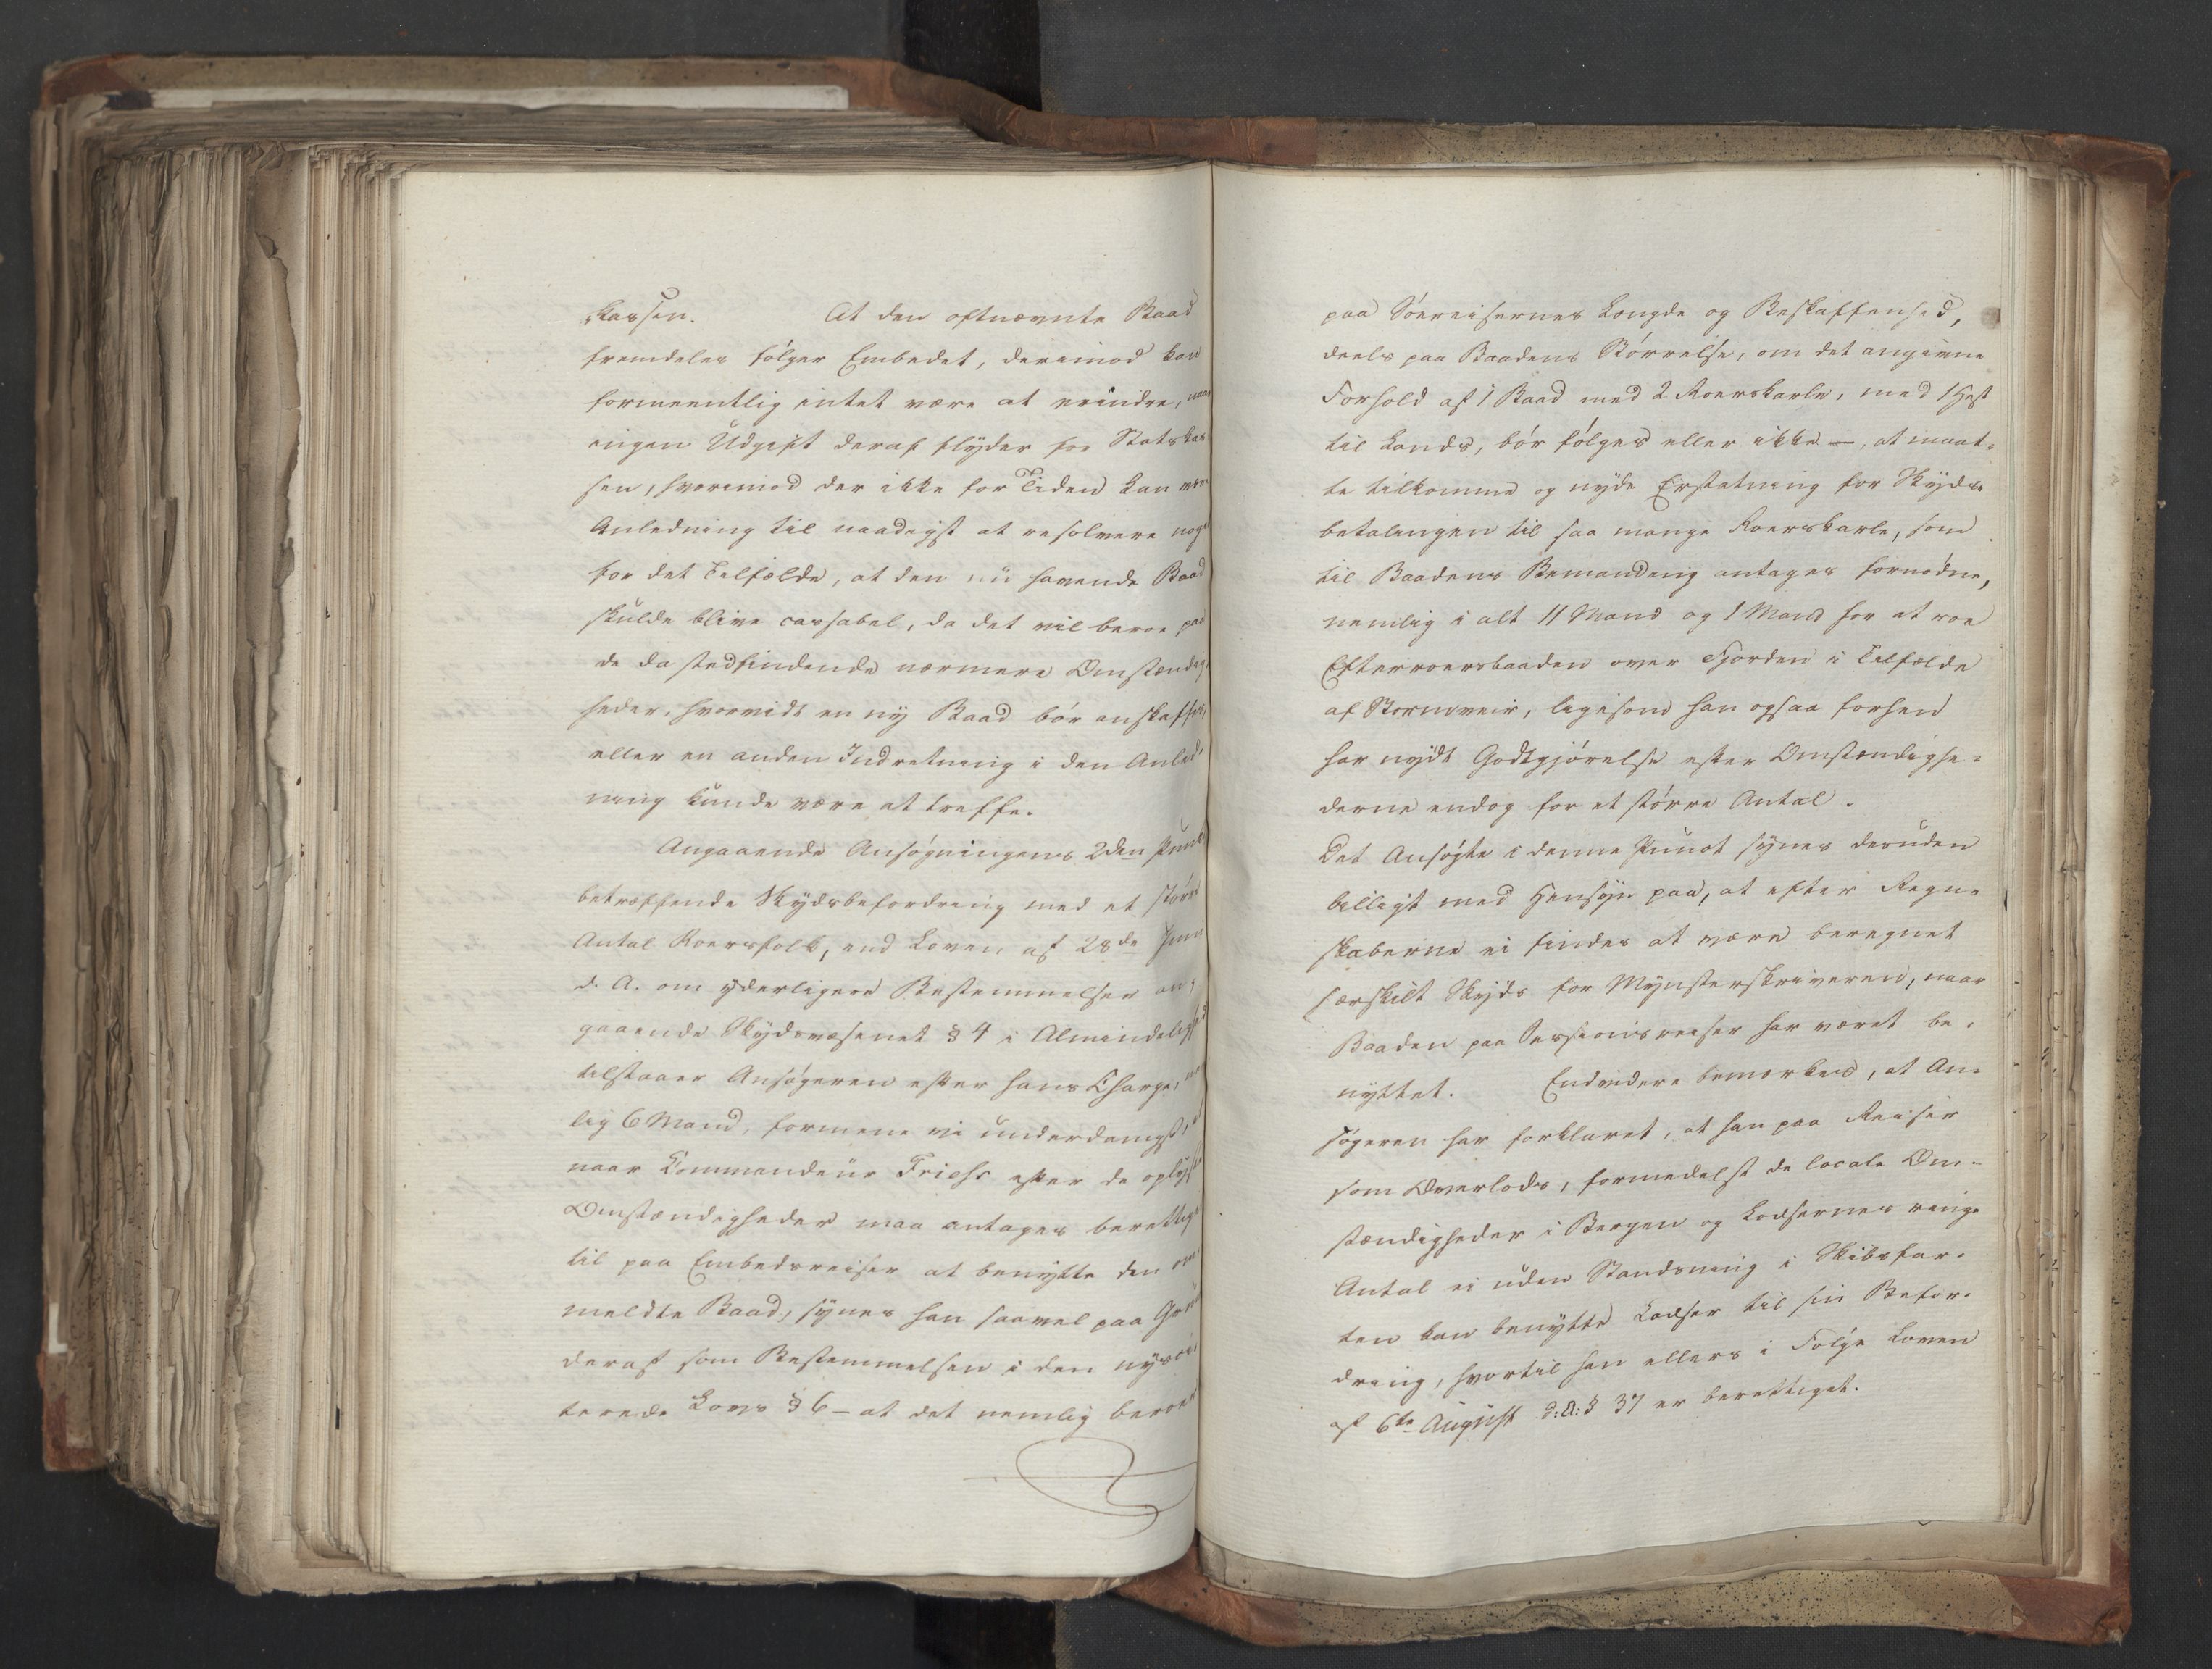 kassen. At den oftnævnte Baad
fremdeles følger Embedet, derimod kan
formeentlig intet være at erindre, naar
ingen Udgift deraf flyder for Statskas
sen, hvorimod der ikke for Tiden kan være
Anledning til naadigst at resolvere noget
for det Tilfælde, at den nu havende Baad
skulde blive cassabel, da det vil beroe paa
de da stedfindende nærmere Omstændig
heder, hvorvidt en ny Baad bør anskaffes,
eller en anden Indretning i den Anled
ning kunde være at treffe.
Angaaende Ansøgningens 2den Punkt
betræffende Skydsbefordring med et større
Antal Roersfolk, end Loven af 28de Juni
d. A. om yderligere Bestemmelser an-
gaaende Skydsvæsenet § 4 i Almindelighed
tilstaaer Ansøgeren efter hans Charge, nem
lig 6 Mand, formene vi underdanigst, at
naar Commandeur Friehs efter de oplyste
Omstændigheder maa antages berettiget
til paa Embedsreiser at benytte den om
meldte Baad, synes han saavel paa Grund
deraf som Bestemmelsen i den nysci
terede Lovs § 6 – at det nemlig beroer
paa Søereisernes Længde og Beskaffenhed,
deels paa Baadens Størrelse, om det angivne
Forhold af 1 Baad med 2 Roerskarle, mod 1 Hest
til Lands, bør følges eller ikke –, at maat-
te tilkomme og nyde Erstatning for Skyds-
betalingen til saa mange Roerskarle, som
til Baadens Bemanding antages fornødne,
nemlig i alt 11 Mand og 1 Mand for at roe
Efterroersbaaden over Fjorden i Tilfælde
af Stormveir, ligesom han ogsaa forhen
har nydt Godtgjørelse efter Omstændighe-
derne endog for et større Antal.
Det Ansøgte i denne Punct synes desuden
billigt med Hensyn paa, at efter Regn-
skaberne ei findes at være beregnet
særskilt Skyds for Mynsterskriveren, naar
Baaden paa Sessionsreiser har været be-
nyttet. Endvidere bemærkes, at An-
søgeren har forklaret, at han paa Reiser
som Overlods, formedelst de locale Om-
stændigheder i Bergen og Lodsernes ringe
Antal ei uden Standsning i Skibsfar-
ten kan benytte Lodser til sin Befor-
dring, hvortil han ellers i Følge Loven
af 6te August d: A: § 37 er berettiget.